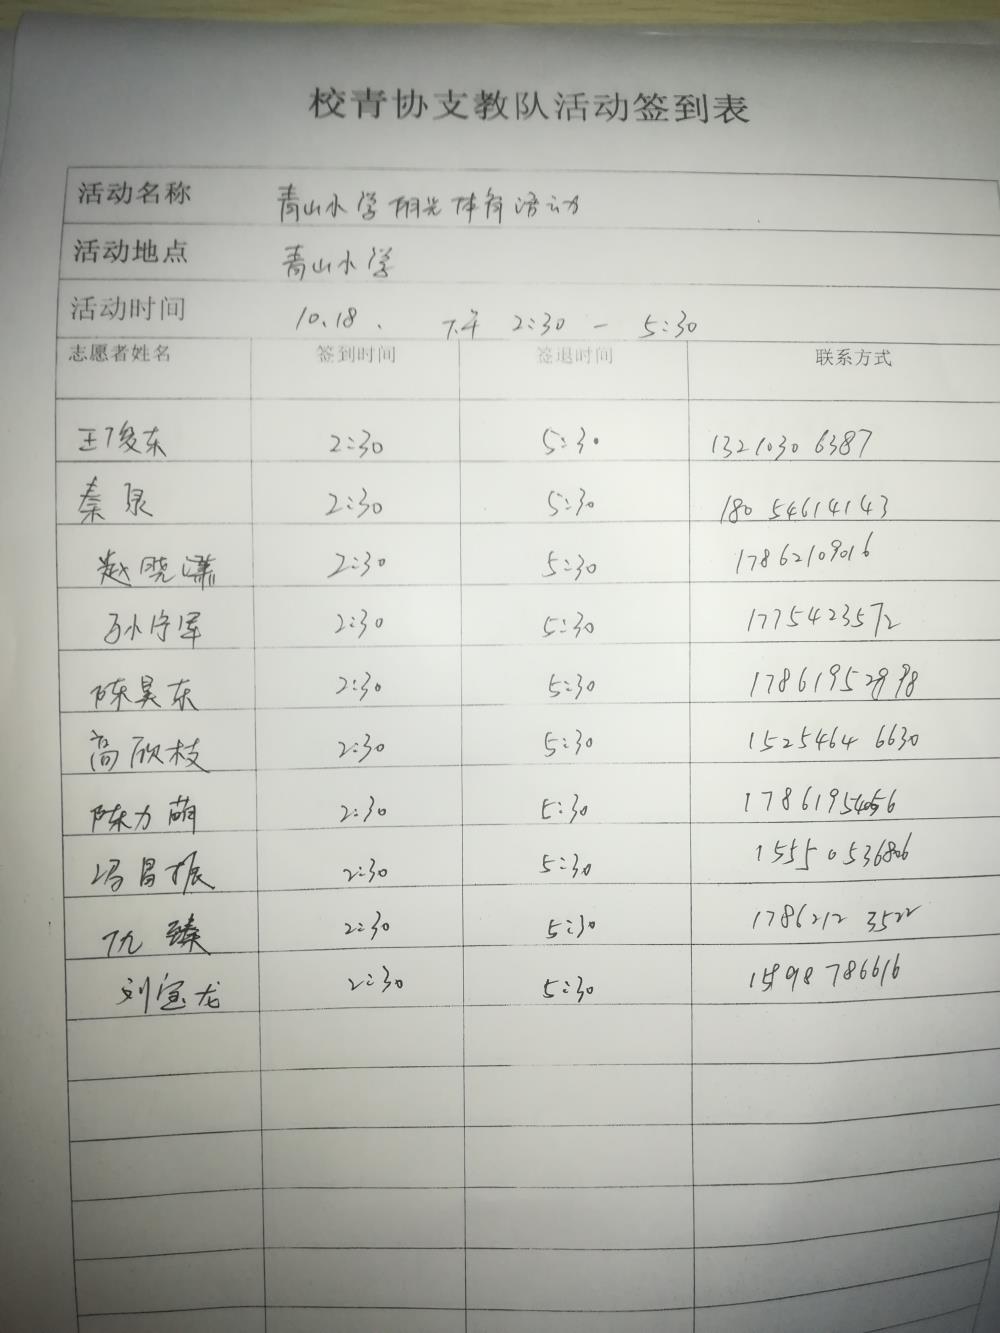 校青协支教队活动签到表
活动名称 青山小学阳光体育活动
活动地点 青山小学
活动时间 10.18. 下午 2:30 — 5:30
志愿者姓名 签到时间 签退时间 联系方式
王俊东 2:30 5:30 13210306387
秦泉 2:30 5:30 18054614143
赵晓潇 2:30 5:30 17862109016
孙守军 2:30 5:30 1775423572
陈昊东 2:30 5:30
高欣枝 2:30 5:30 15254646630
陈力萌 2:30 5:30
冯昌振 2:30 5:30
仇臻 2:30 5:30 17862123522
刘宝龙 2:30 5:30